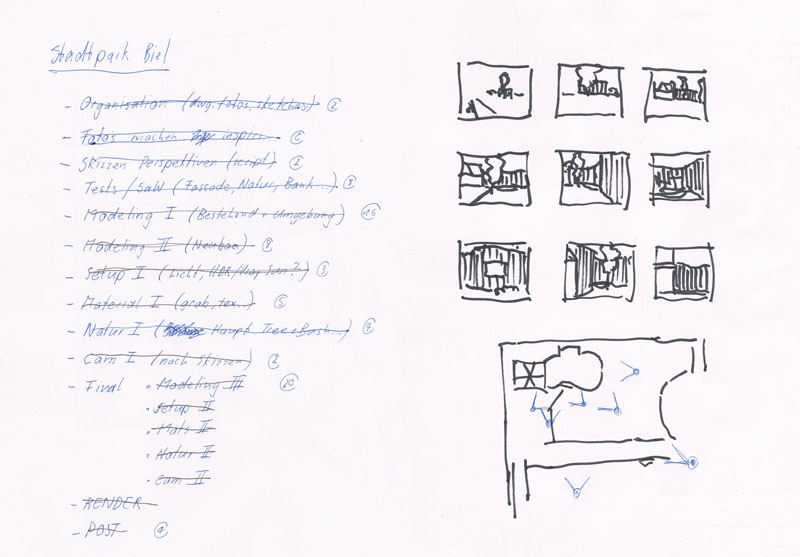 Stadtpark Biel
- Organisation (dwg, fotos, sketches) ②
- Fotos machen inspir... ⑥
- Skizzen Perspektiven (script) ②
- Tests / SaW (Fassade, Natur, Bank...)
- Modeling I (Bestehend + Umgebung) ⑯
- Modeling II (Neubau)
- Setup I (Licht, HDR/Vray Sun?) ③
- Material I (grob, tex..) ⑤
- Natur I (Haupt Tree + Bush...)
- Cam I (nach Skizzen) ②
- Final • Modeling III ⑳
• Setup II
• Mats II
• Natur II
• Cam II
- RENDER
- POST